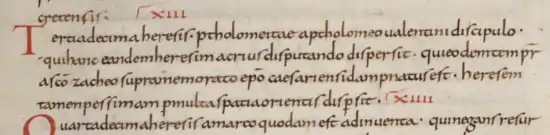 cretensis · XIII
Tertiadecima heresis · ptholomeitae a ptholomeo ualentini discipulo ·
qui hanc eandem heresim acrius disputando dispersit · qui eodem temp̄r
a sc̄o zacheo supra memorato ep̄o caesariensi damnatus est · heresem
tamen pessimam p multa spatia orientis dispsit · XIIII
Quarta decima heresis a marco quodam est adinuenta · qui negans resur